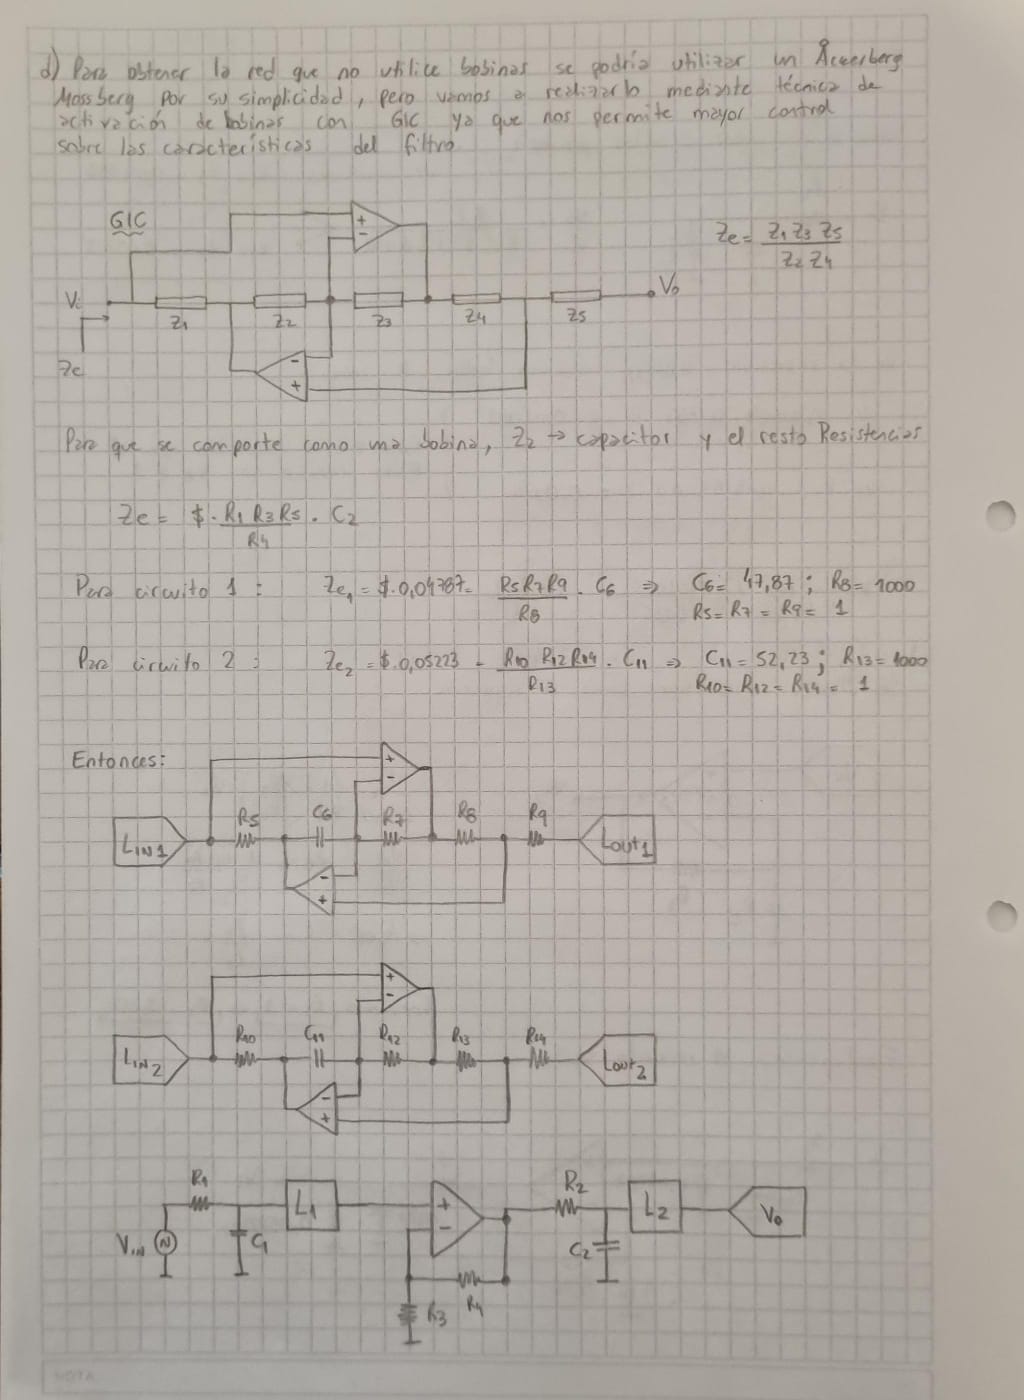 d) Para obtener la red que no utilice bobinas se podría utilizar un Åckerberg
Mossberg por su simplicidad, pero vamos a realizarlo mediante técnica de
activación de bobinas con GIC ya que nos permite mayor control
sobre las características del filtro
GIC
+
-
Ze = Z1 Z3 Z5 / Z2 Z4
Vi
Z1
Z2
Z3
Z4
Z5
Vo
Ze
-
+
Para que se comporte como una bobina, Z2 → capacitor y el resto Resistencias
Ze = $ · R1 R3 R5 / R4 · C2
Para circuito 1 : Ze1 = $·0,04787 = R5 R7 R9 / R8 · C6 ⇒ C6 = 47,87 ; R8 = 1000
R5 = R7 = R9 = 1
Para circuito 2 : Ze2 = $·0,05223 = R10 R12 R14 / R13 · C11 ⇒ C11 = 52,23 ; R13 = 1000
R10 = R12 = R14 = 1
Entonces:
+
-
R5
C6
R7
R8
R9
LIN1
Lout1
-
+
+
-
R10
C11
R12
R13
R14
LIN2
Lout2
-
+
R1
R2
L1
+
-
L2
Vo
Vin
C1
C2
R4
R3
NOTA